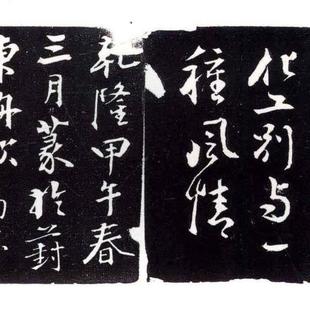 化工別与一
種風情
乾隆甲午春
三月篆於葑
東舟次